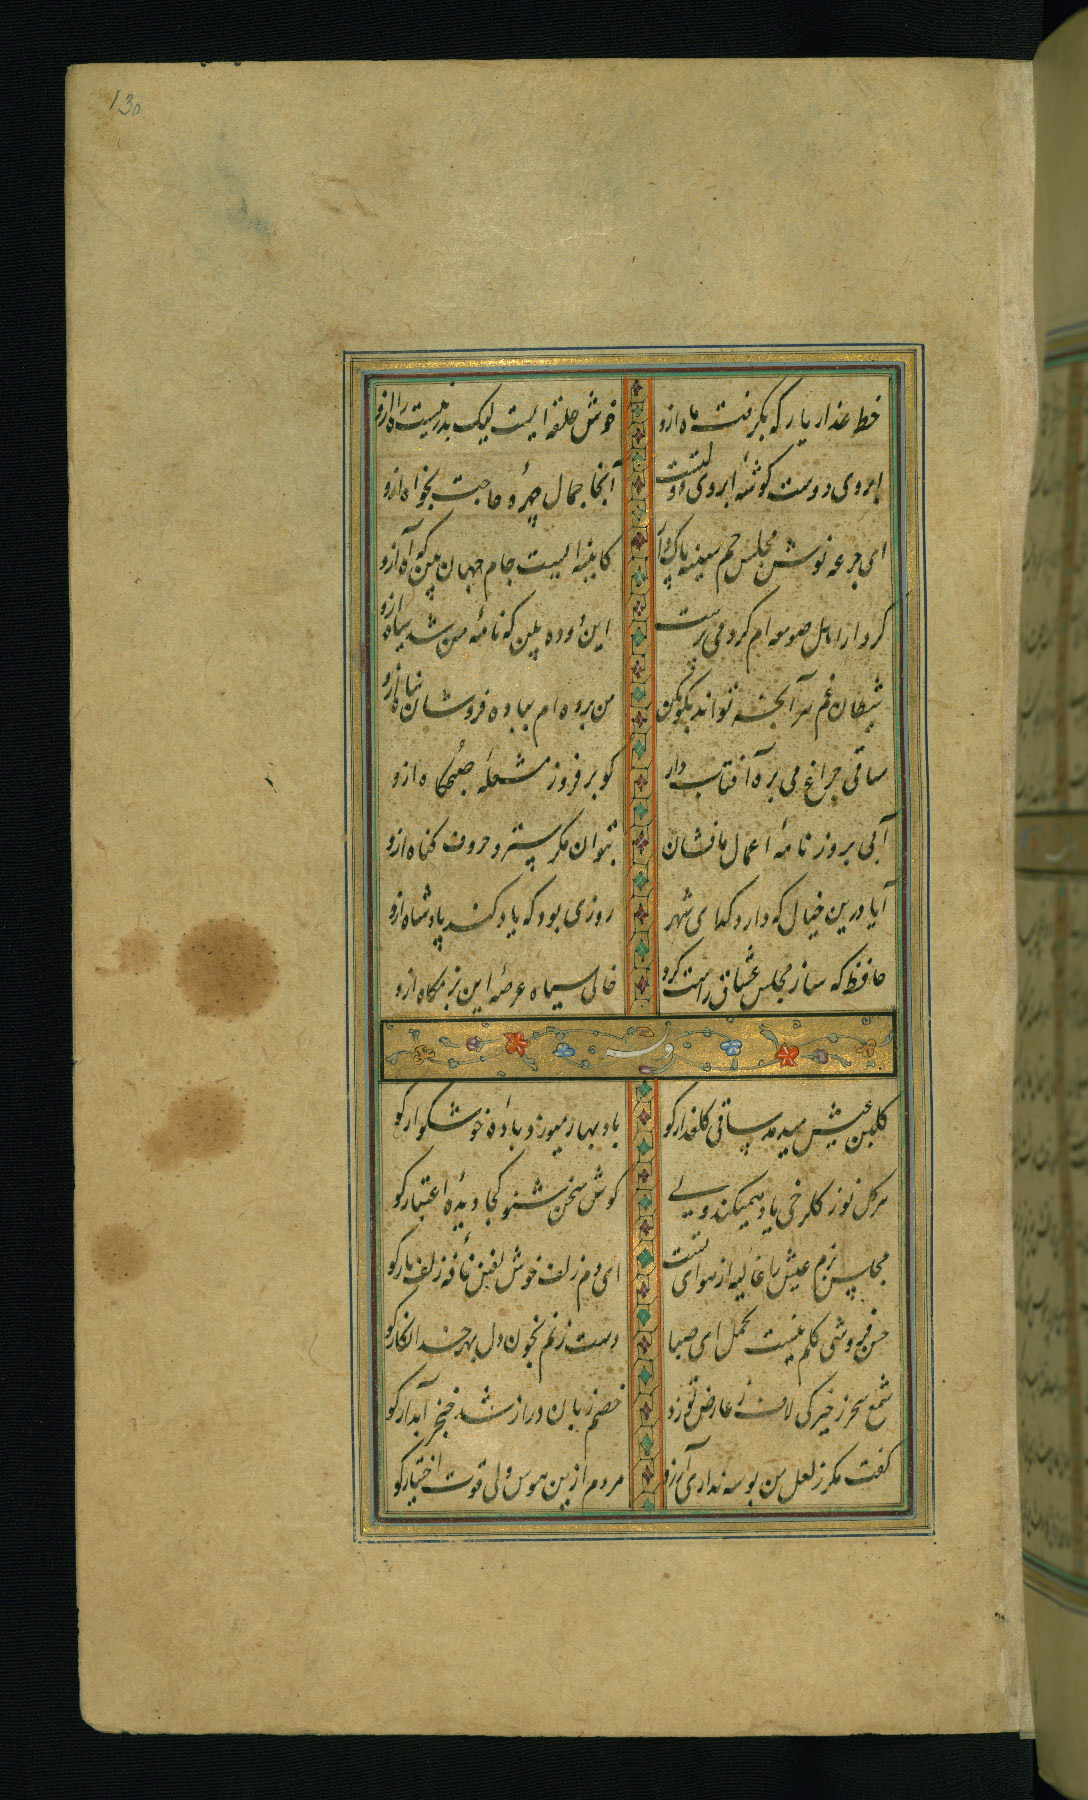 130
خط عذار یار که بگرفت ماه ازو خوش حلقه ایست لیک بدر نیست راه ازو
ابروی دوست گوشهٔ ابروی دولتست آنجا جمال چهره و حاجت بخواه ازو
ای جرعه نوش مجلس جم سینه پاک دار کایینه ایست جام جهان بین که آه ازو
کردار اهل صومعه ام کرد می پرست این دوده بین که نامهٔ من شد سیاه ازو
شیطان غم هر آنچه تواند بگو بکن من برده ام بباده فروشان پناه ازو
ساقی چراغ می بره آفتاب دار گو بر فروز مشعلهٔ صبحگاه ازو
آبی بروز نامهٔ اعمال ما فشان بتوان مگر سترد حروف گناه ازو
آیا درین خیال که دارد گدای شهر روزی بود که یاد کند پادشاه ازو
حافظ که ساز مجلس عشاق راست کرد خالی سیماه عرصهٔ این بزمگاه ازو
وله
گلبن عیش میدمد ساقی گلعذار کو باد بهار میوزد بادهٔ خوشگوار کو
هر گل نو ز گلرخی یاد همیکند ولی گوش سخن شنو کجا دیدهٔ اعتبار کو
مجلس بزم عیش را غالیهٔ از هوای تست ای دم زلف خوش نفس نافهٔ زلف یار کو
حسن فروشی گلم نیست تحمل ای صبا دست زدم بخون دل بهر خدا نگار کو
شمع سحر ز خیرگی لاف ز عارض تو زد خصم زبان دراز شد خنجر آبدار کو
گفت مگر ز لعل من بوسه نداری آرزو مردم ازین هوس ولی قوت اختیار کو